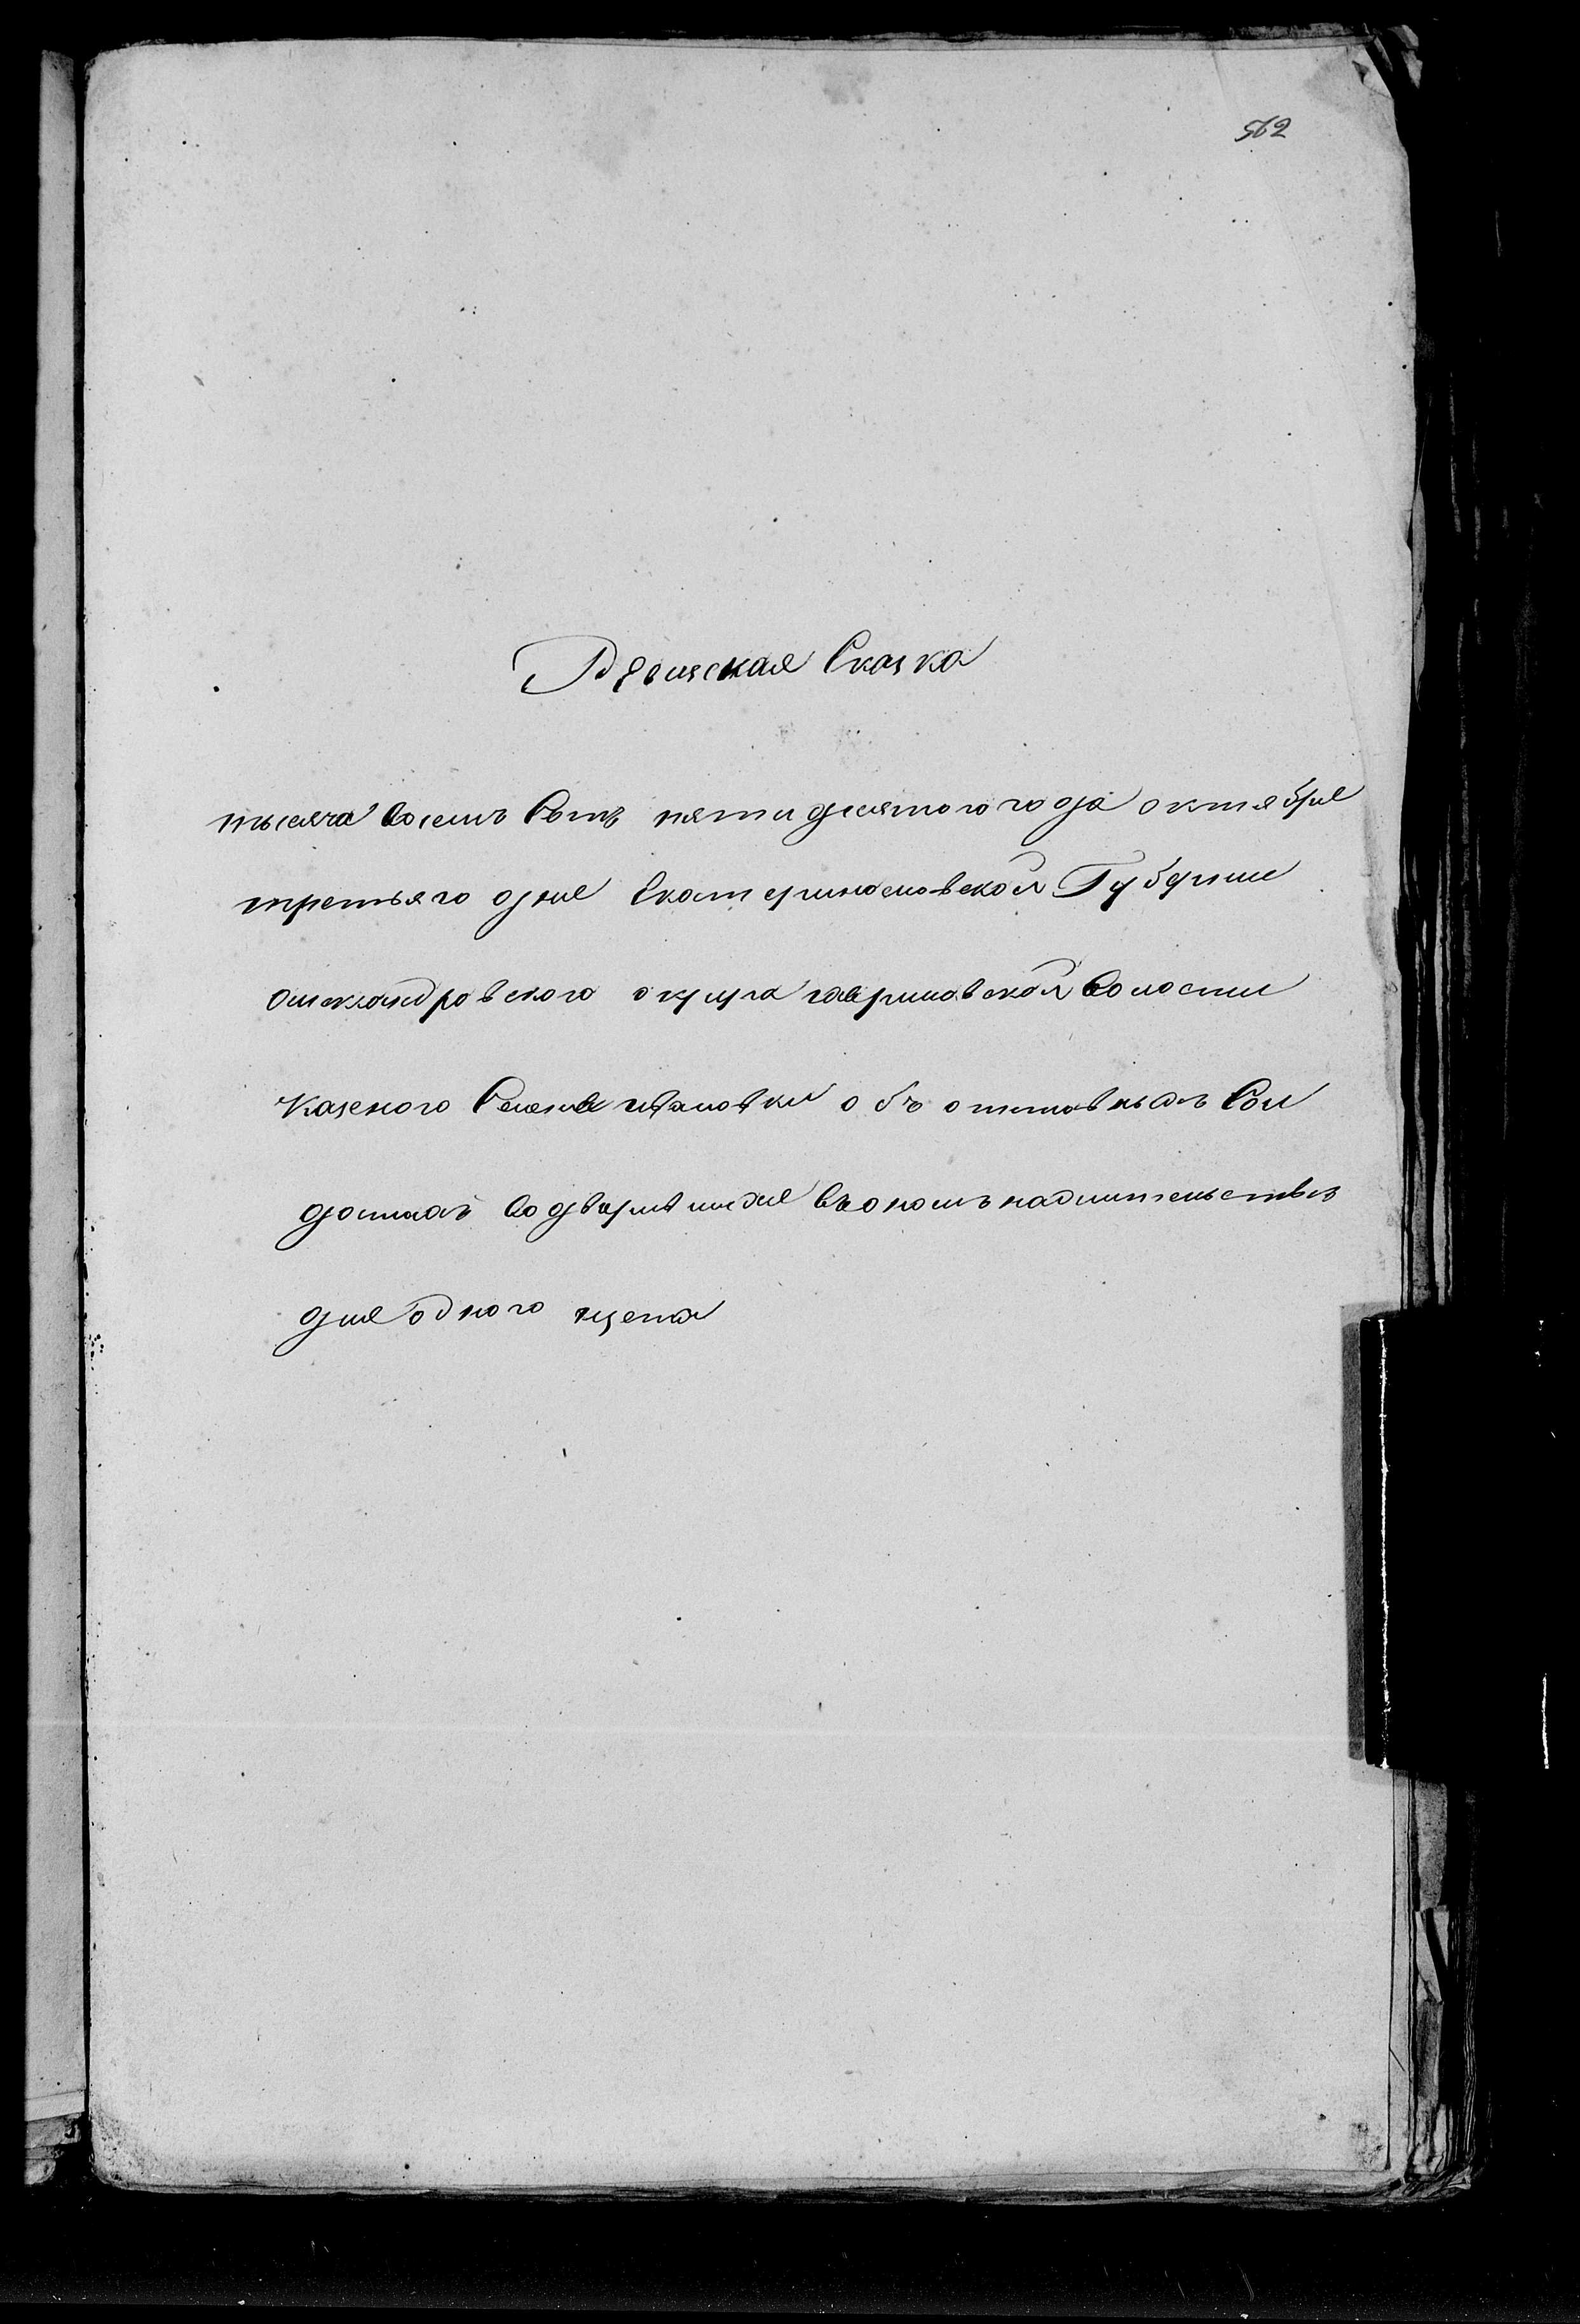 562
Ревизская Сказка
тысяча восемъ Сотъ пятидесятого года октября
третьяго дня Екатеринославской Губернии
александровского округа гавриловской Волости
Казеного Селения ивановки объ отставныхъ Сол
датахъ водвирившихся въ ономъ на жительство
для одного щета